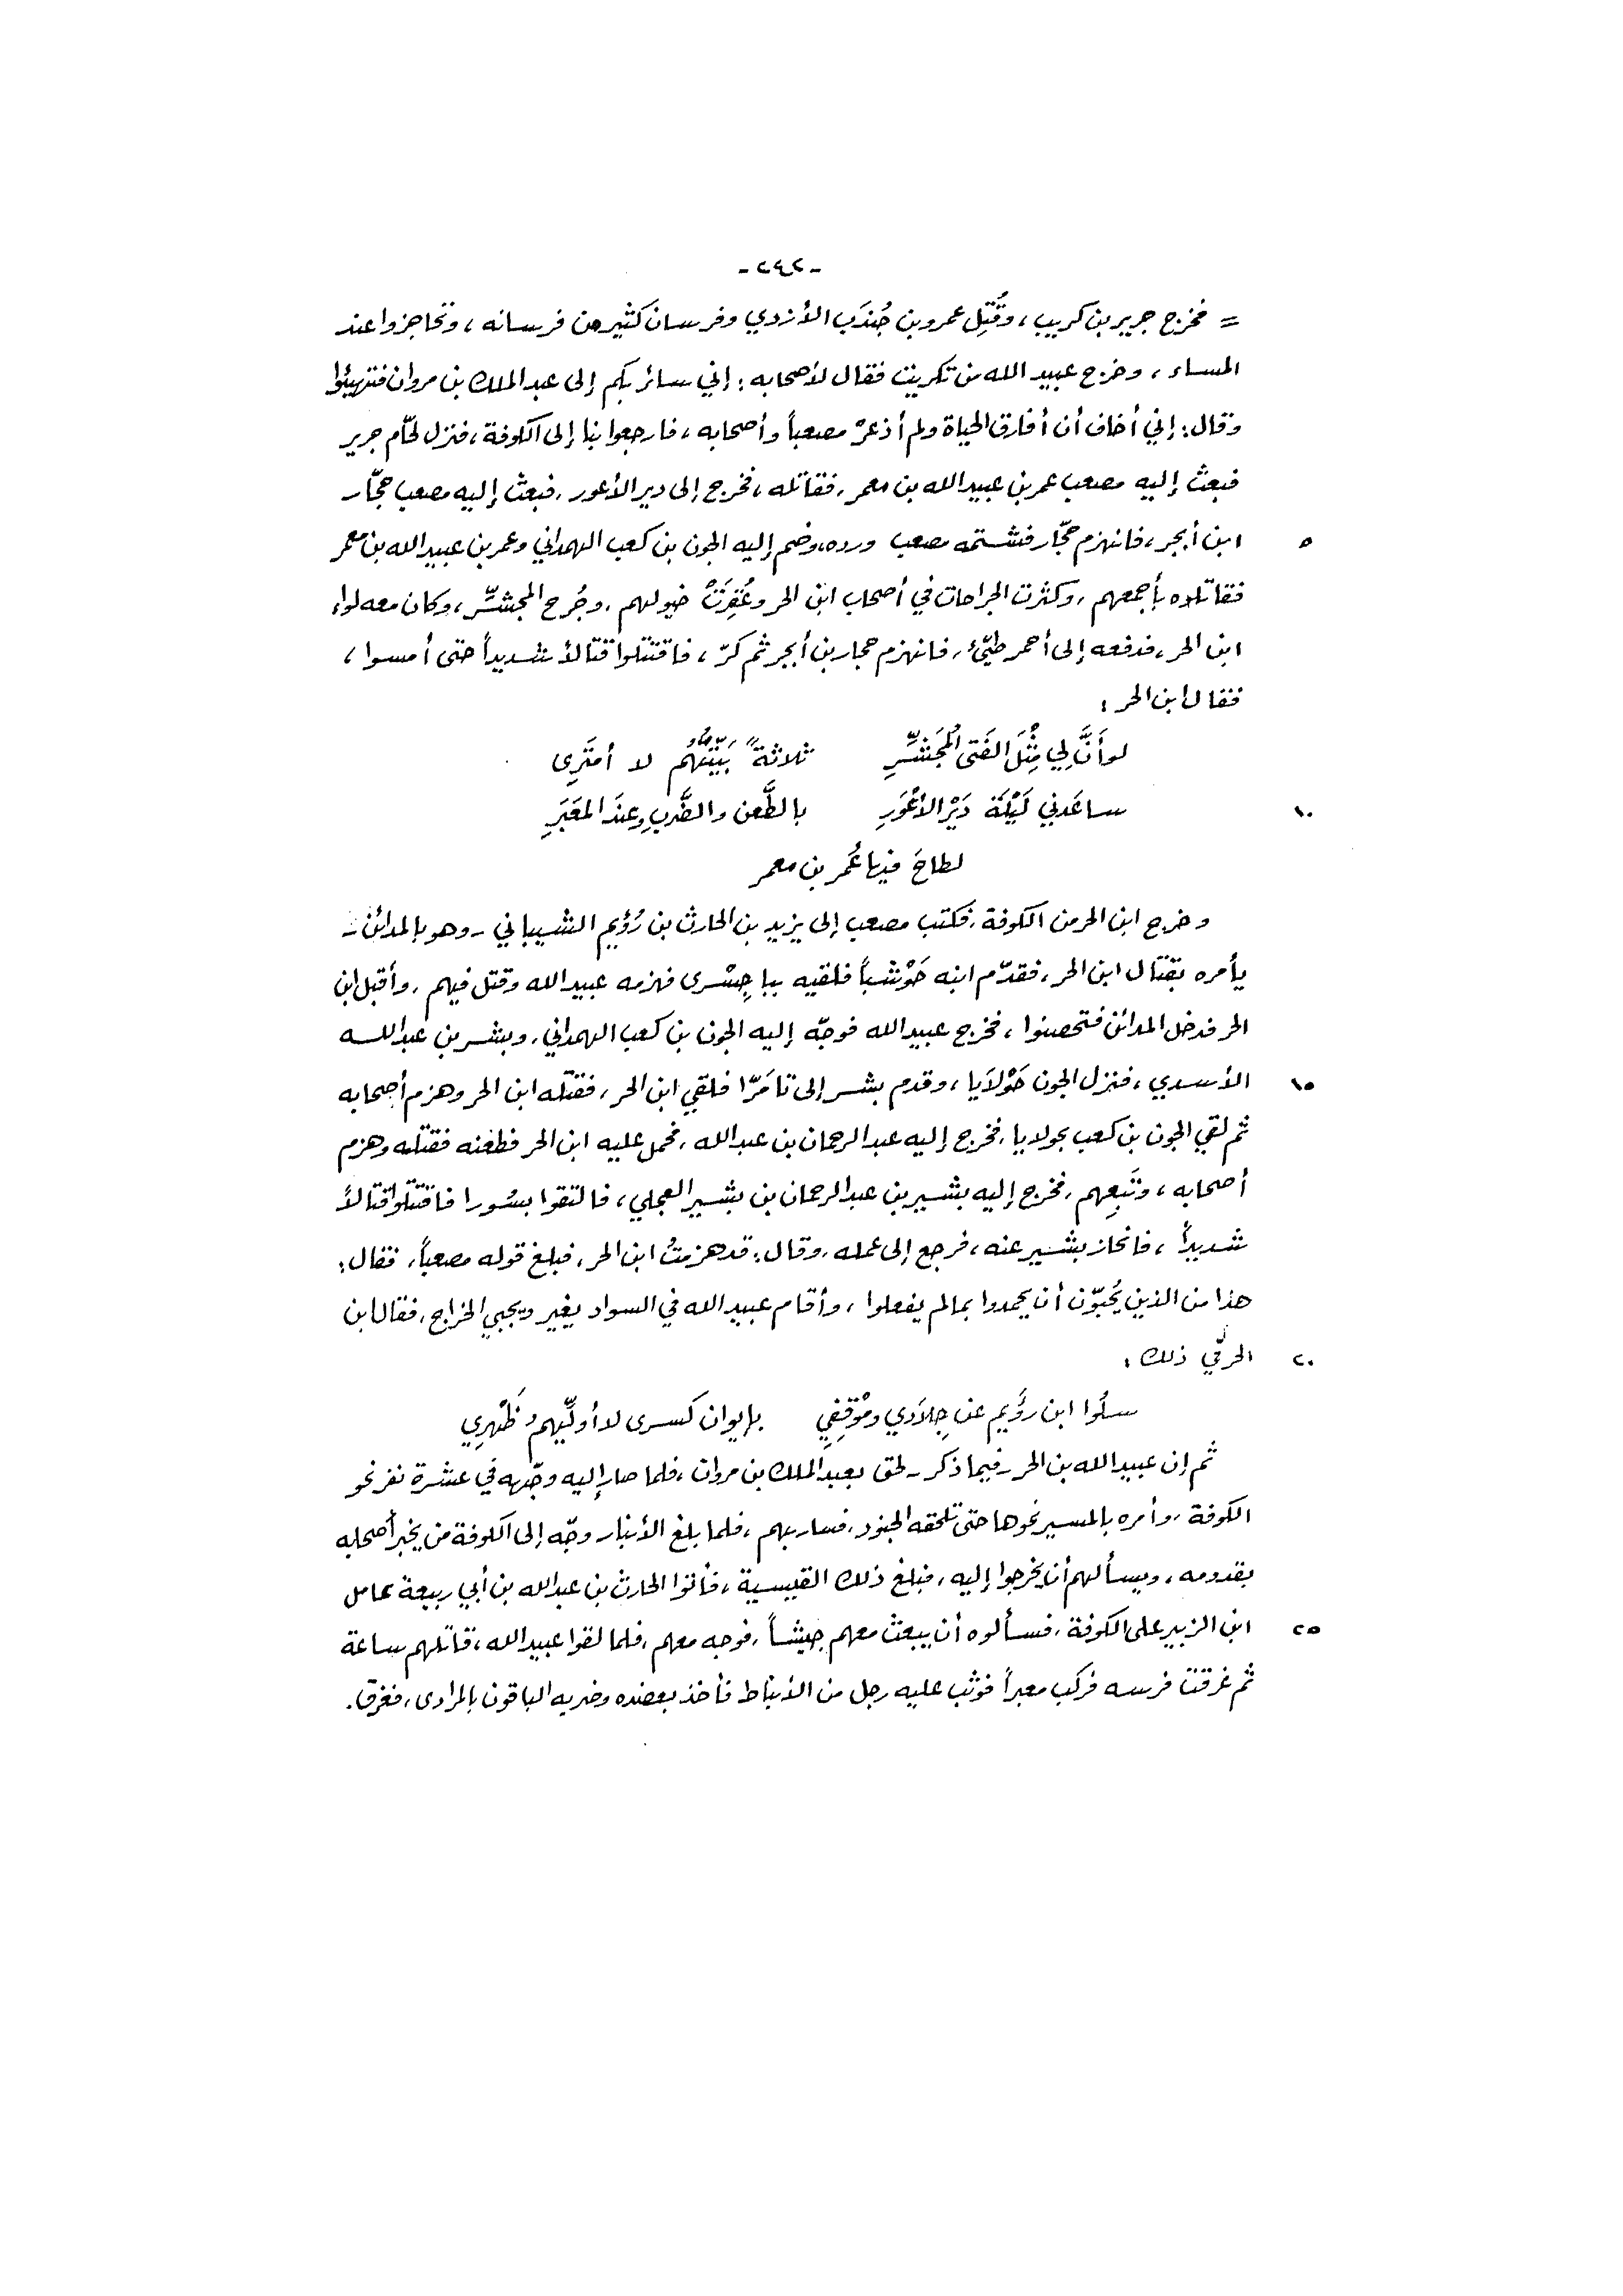 - ٢٤٢ -
= فخرج جرير بن كريب، وقُتِل عمرو بن جُندَب الأزدي وفرسان كثير من فرسانه، وتحاجزوا عند
المساء، وخرج عبيد الله من تكريت فقال لأصحابه: إني سائر بكم إلى عبد الملك بن مروان فتهيئوا
وقال: إني أخاف أن أفارق الحياة ولم أذعرْ مصعباً وأصحابه، فارجعوا بنا إلى الكوفة، فنزل لحّام جرير
فبعث إليه مصعب عمر بن عبيد الله بن معمر، فقاتله، فخرج إلى دير الأعور، فبعث إليه مصعب حجّار
٥ ابن أبجر، فانهزم حجّار فشتمه مصعب ورده، وضم إليه الجون بن كعب الهمداني وعمر بن عبيد الله بن معمر
فقاتلاوه بأجمعهم، وكثرت الجراحات في أصحاب ابن الحر وعُقِرَتْ خيولهم، وجُرح المجشّر، وكان معه لواء
ابن الحر، فدفعه إلى أحمر طيّئ، فانهزم حجار بن أبجر ثم كرّ، فاقتتلوا قتالاً شديداً حتى أمسوا،
فقال ابن الحر:
لو أنَّ لي مِثْلَ الفَتى المُجَشِّرِ ثلاثةً بَيَّتُّهُم لا أمتَرِى
١٠ ساعَدني لَيْلَةَ دَيْرِ الأعْوَرِ بالطَّعن والضَّربِ وعِندَ المعَبَرِ
لطاحَ فيها عُمر بن معمر
وخرج ابن الحر من الكوفة، فكتب مصعب إلى يزيد بن الحارث بن رُؤيم الشيباني - وهو بالمدائن -
يأمره بقتال ابن الحر، فقدّم ابنه حَوْشباً فلقيه بباجِسْرى فهزمه عبيد الله وقتل فيهم، وأقبل ابن
الحر فدخل المدائن فتحصنوا، فخرج عبيد الله فوجّه إليه الجون بن كعب الهمداني، وبشر بن عبد الله
١٥ الأسدي، فنزل الجون حَوْلاَيا، وقدم بشر إلى تامَرّا فلقي ابن الحر، فقتله ابن الحر وهزم أصحابه
ثم لقي الجون بن كعب بحولايا، فخرج إليه عبد الرحمان بن عبد الله، فحمل عليه ابن الحر فطعنه فقتله وهزم
أصحابه، وتَبعهم، فخرج إليه بشير بن عبد الرحمان بن بشير العجلي، فالتقوا بسُورا فاقتتلوا قتالاً
شديداً، فانحاز بشير عنه، فرجع إلى عمله، وقال: قد هزمتُ ابن الحر، فبلغ قوله مصعباً، فقال:
هذا من الذين يُحبّون أن يحمدوا بما لم يفعلوا، وأقام عبيد الله في السواد يغير ويجبي الخراج، فقال ابن
٢٠ الحر في ذلك:
سلُوا ابن رؤَيم عن جِلاَدي ومْوَقِفِي بإيوان كسرى لا أولِّيهم ظَهْرِي
ثم إن عبيد الله بن الحر - فيما ذكر - لحق بعبد الملك بن مروان، فلما صار إليه وجّهه في عشرة نفر نحو
الكوفة، وأمره بالمسير نحوها حتى تلحقه الجنود، فسار بهم، فلما بلغ الأنبار وجّه إلى الكوفة من يخبر أصحابه
بقدومه، ويسألهم أن يخرجوا إليه، فبلغ ذلك القيسية، فأتوا الحارث بن عبد الله بن أبي ربيعة عامل
٢٥ ابن الزبير على الكوفة، فسألوه أن يبعث معهم جيشاً، فوجه معهم، فلما لقوا عبيد الله، قاتلهم ساعة
ثم غرقت فرسه فركب معبراً فوثب عليه رجل من الأنباط فأخذ بعضده وضربه الباقون بالمرادى، فغرق.